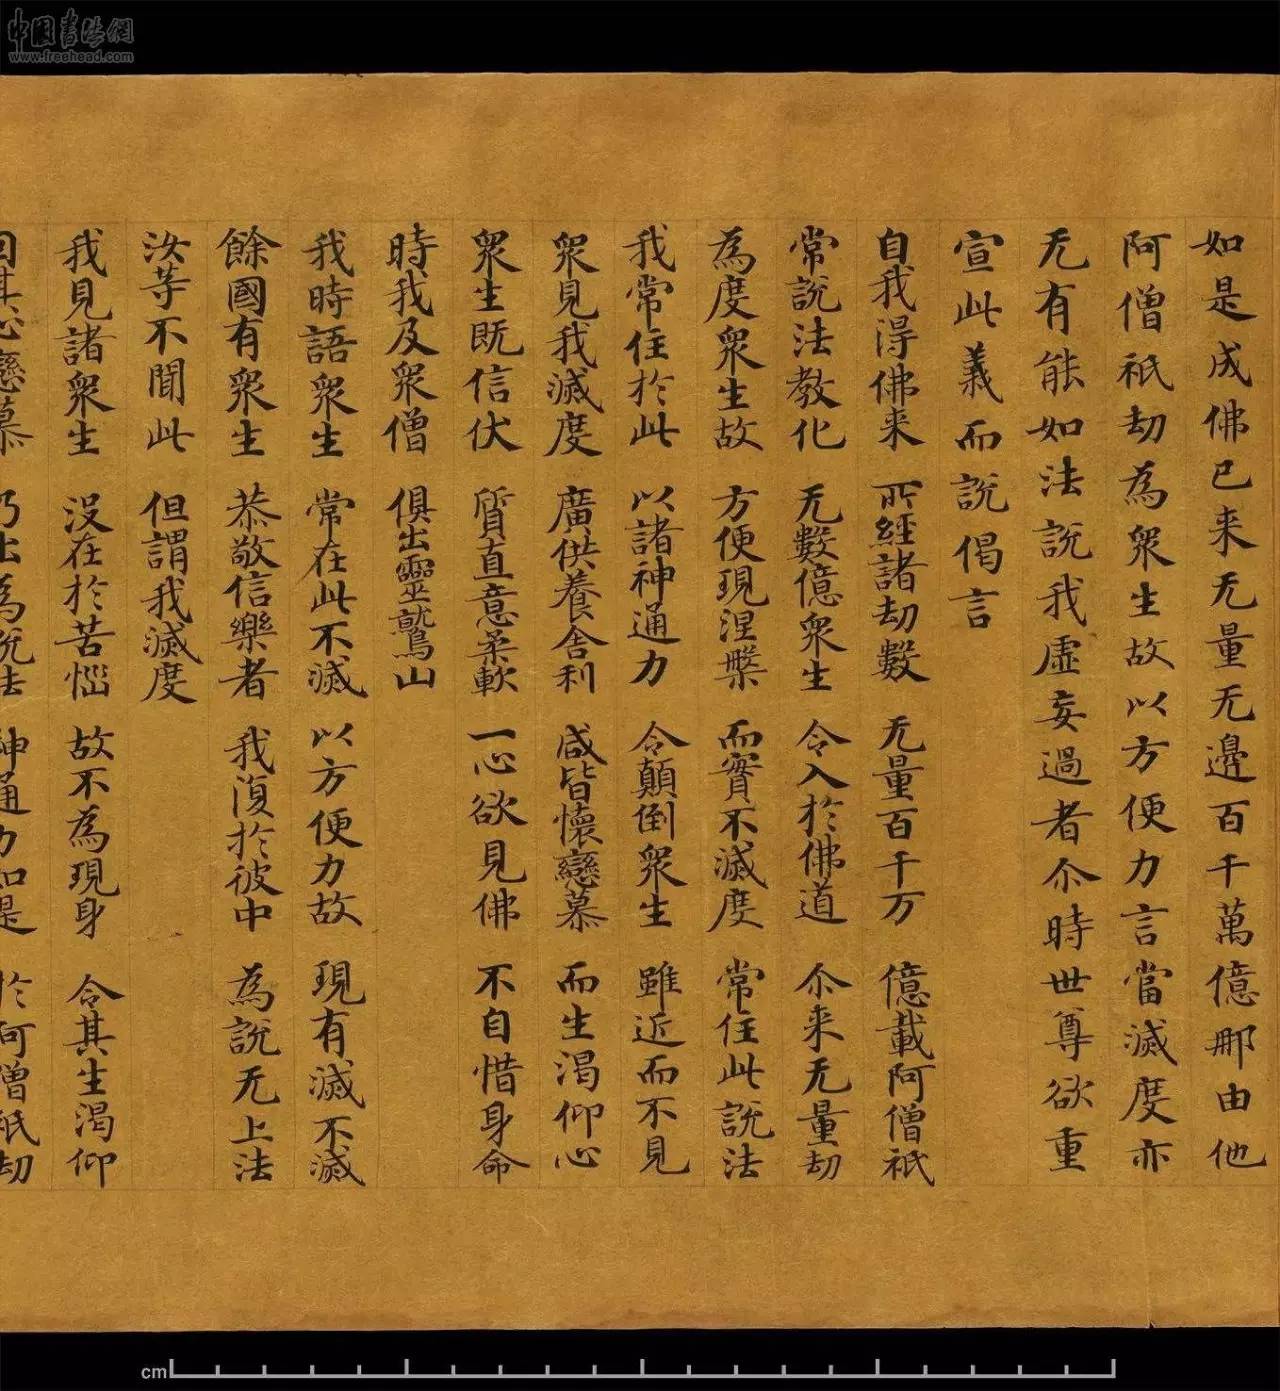 中国书法網
www.freehead.com
如是成佛已来无量无邊百千萬億那由他
阿僧祇劫為衆生故以方便力言當滅度亦
无有能如法說我虛妄過者尒時世尊欲重
宣此義而說偈言
自我得佛来 所經諸劫數 无量百千万 億載阿僧祇
常說法教化 无數億衆生 令入於佛道 尒来无量劫
為度衆生故 方便現涅槃 而實不滅度 常住此說法
我常住於此 以諸神通力 令顛倒衆生 雖近而不見
衆見我滅度 廣供養舎利 咸皆懷戀慕 而生渴仰心
衆生既信伏 質直意柔軟 一心欲見佛 不自惜身命
時我及衆僧 俱出靈鷲山
我時語衆生 常在此不滅 以方便力故 現有滅不滅
餘國有衆生 恭敬信樂者 我復於彼中 為說无上法
汝等不聞此 但謂我滅度
我見諸衆生 没在於苦惱 故不為現身 令其生渴仰
因其心戀慕 乃出為說法 神通力如是 於阿僧祇劫
cm